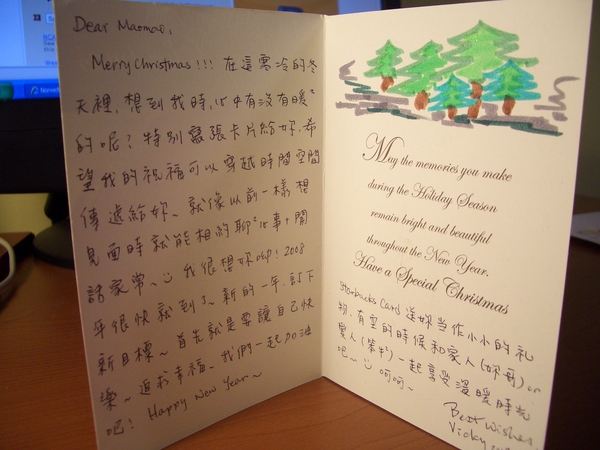 Dear Maomao,
Merry Christmas!!! 在這寒冷的冬
天裡,想到我時,心中有沒有暖暖
的呢?特別寫張卡片給妳,希
望我的祝福可以穿越時間空間
傳遞給妳~就像以前一樣想
見面時就能相約聊聊心事、閒
話家常~ 我很想妳喔! 2008
年很快就到了~新的一年,訂下
新目標~首先就是要讓自己快
樂~追我幸福~我們一起加油
吧! Happy New Year~
May the memories you make
during the Holiday Season
remain bright and beautiful
throughout the New Year.
Have a Special Christmas
Starbucks Card 送妳當作小小的礼
物,有空的時候和家人(妳哥)or
愛人(笨牛)一起享受溫暖時光
吧~ 呵呵~
Best Wishes,
Vicky